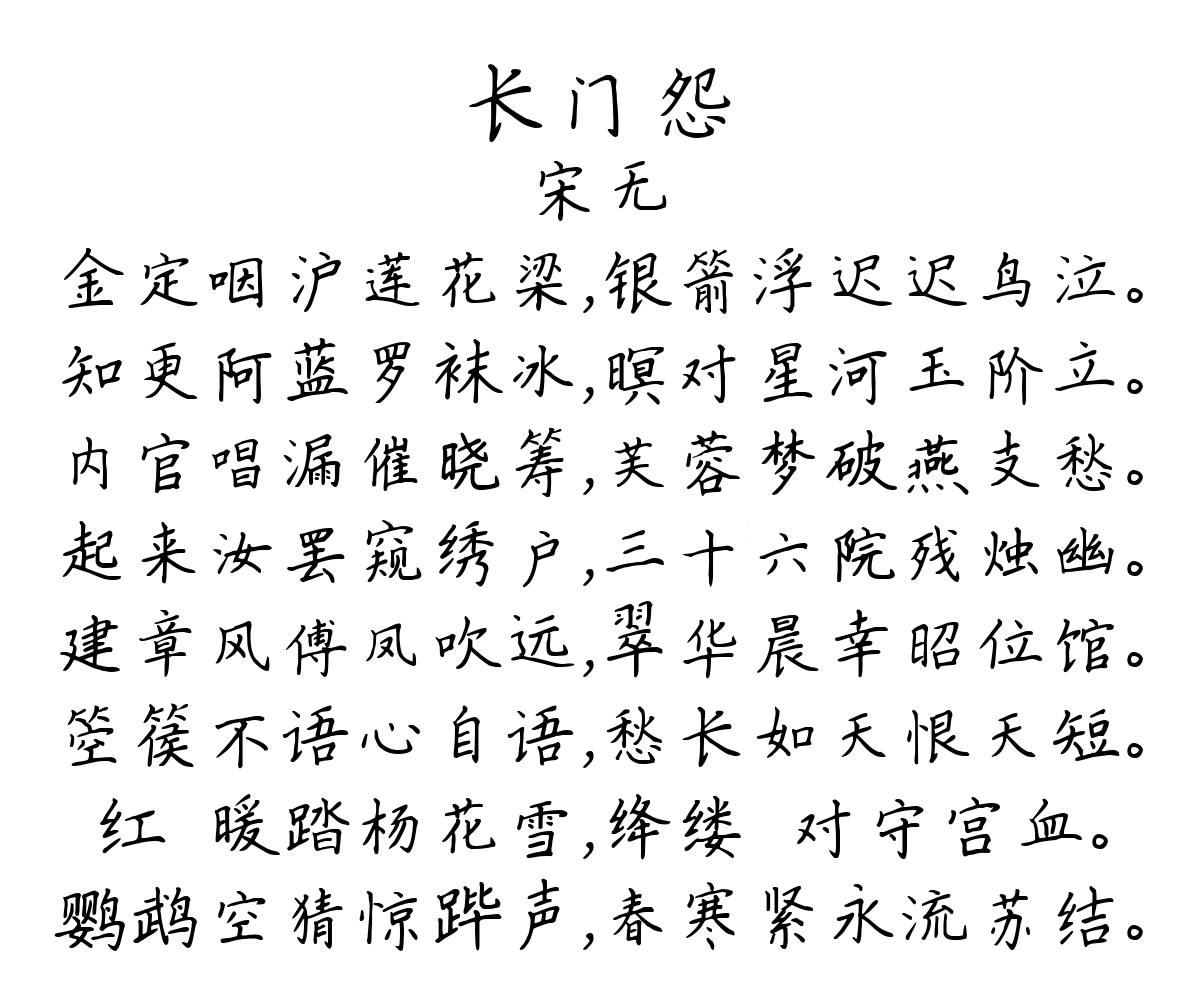 长门怨
宋无
金定咽沪莲花梁,银箭浮迟迟鸟泣。
知更阿蓝罗袜冰,暝对星河玉阶立。
内官唱漏催晓筹,芙蓉梦破燕支愁。
起来汝罢窥绣户,三十六院残烛幽。
建章风傅凤吹远,翠华晨幸昭位馆。
箜篌不语心自语,愁长如天恨天短。
红 暖踏杨花雪,绛缕 对守宫血。
鹦鹉空猜惊跸声,春寒紧永流苏结。